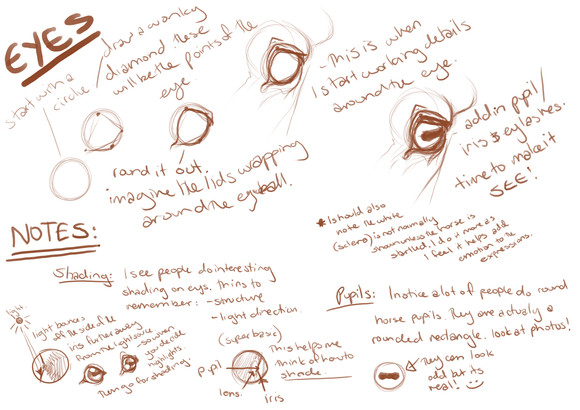 EYES
start with a
circle
draw a wonky
diamond. these
will be the points of the
eye
rond it out.
imagine the lids wrapping
around the eyeball.
- This is when
I start working details
around the eye.
add in pupil/
iris & eyelashes.
time to make it
SEE!
* I should also
note the white
(sclera) is not normally
shown unless the horse is
startled. I do it more as
I feel it helps add
emotion to the
expressions.
NOTES:
Shading: I see people do interesting
shading on eyes. Thins to
remember: - structure
- light direction.
light
light bounces
off the side of the
iris furthest away
from the light source
- so even
you decide
highlights.
Then go for shading.
(super basic)
pupil
lens.
iris
This helps me
think of how to
shade.
Pupils: I notice a lot of people do round
horse pupils. They are actually a
rounded rectangle. look at photos!
They can look
odd but its
real! :)